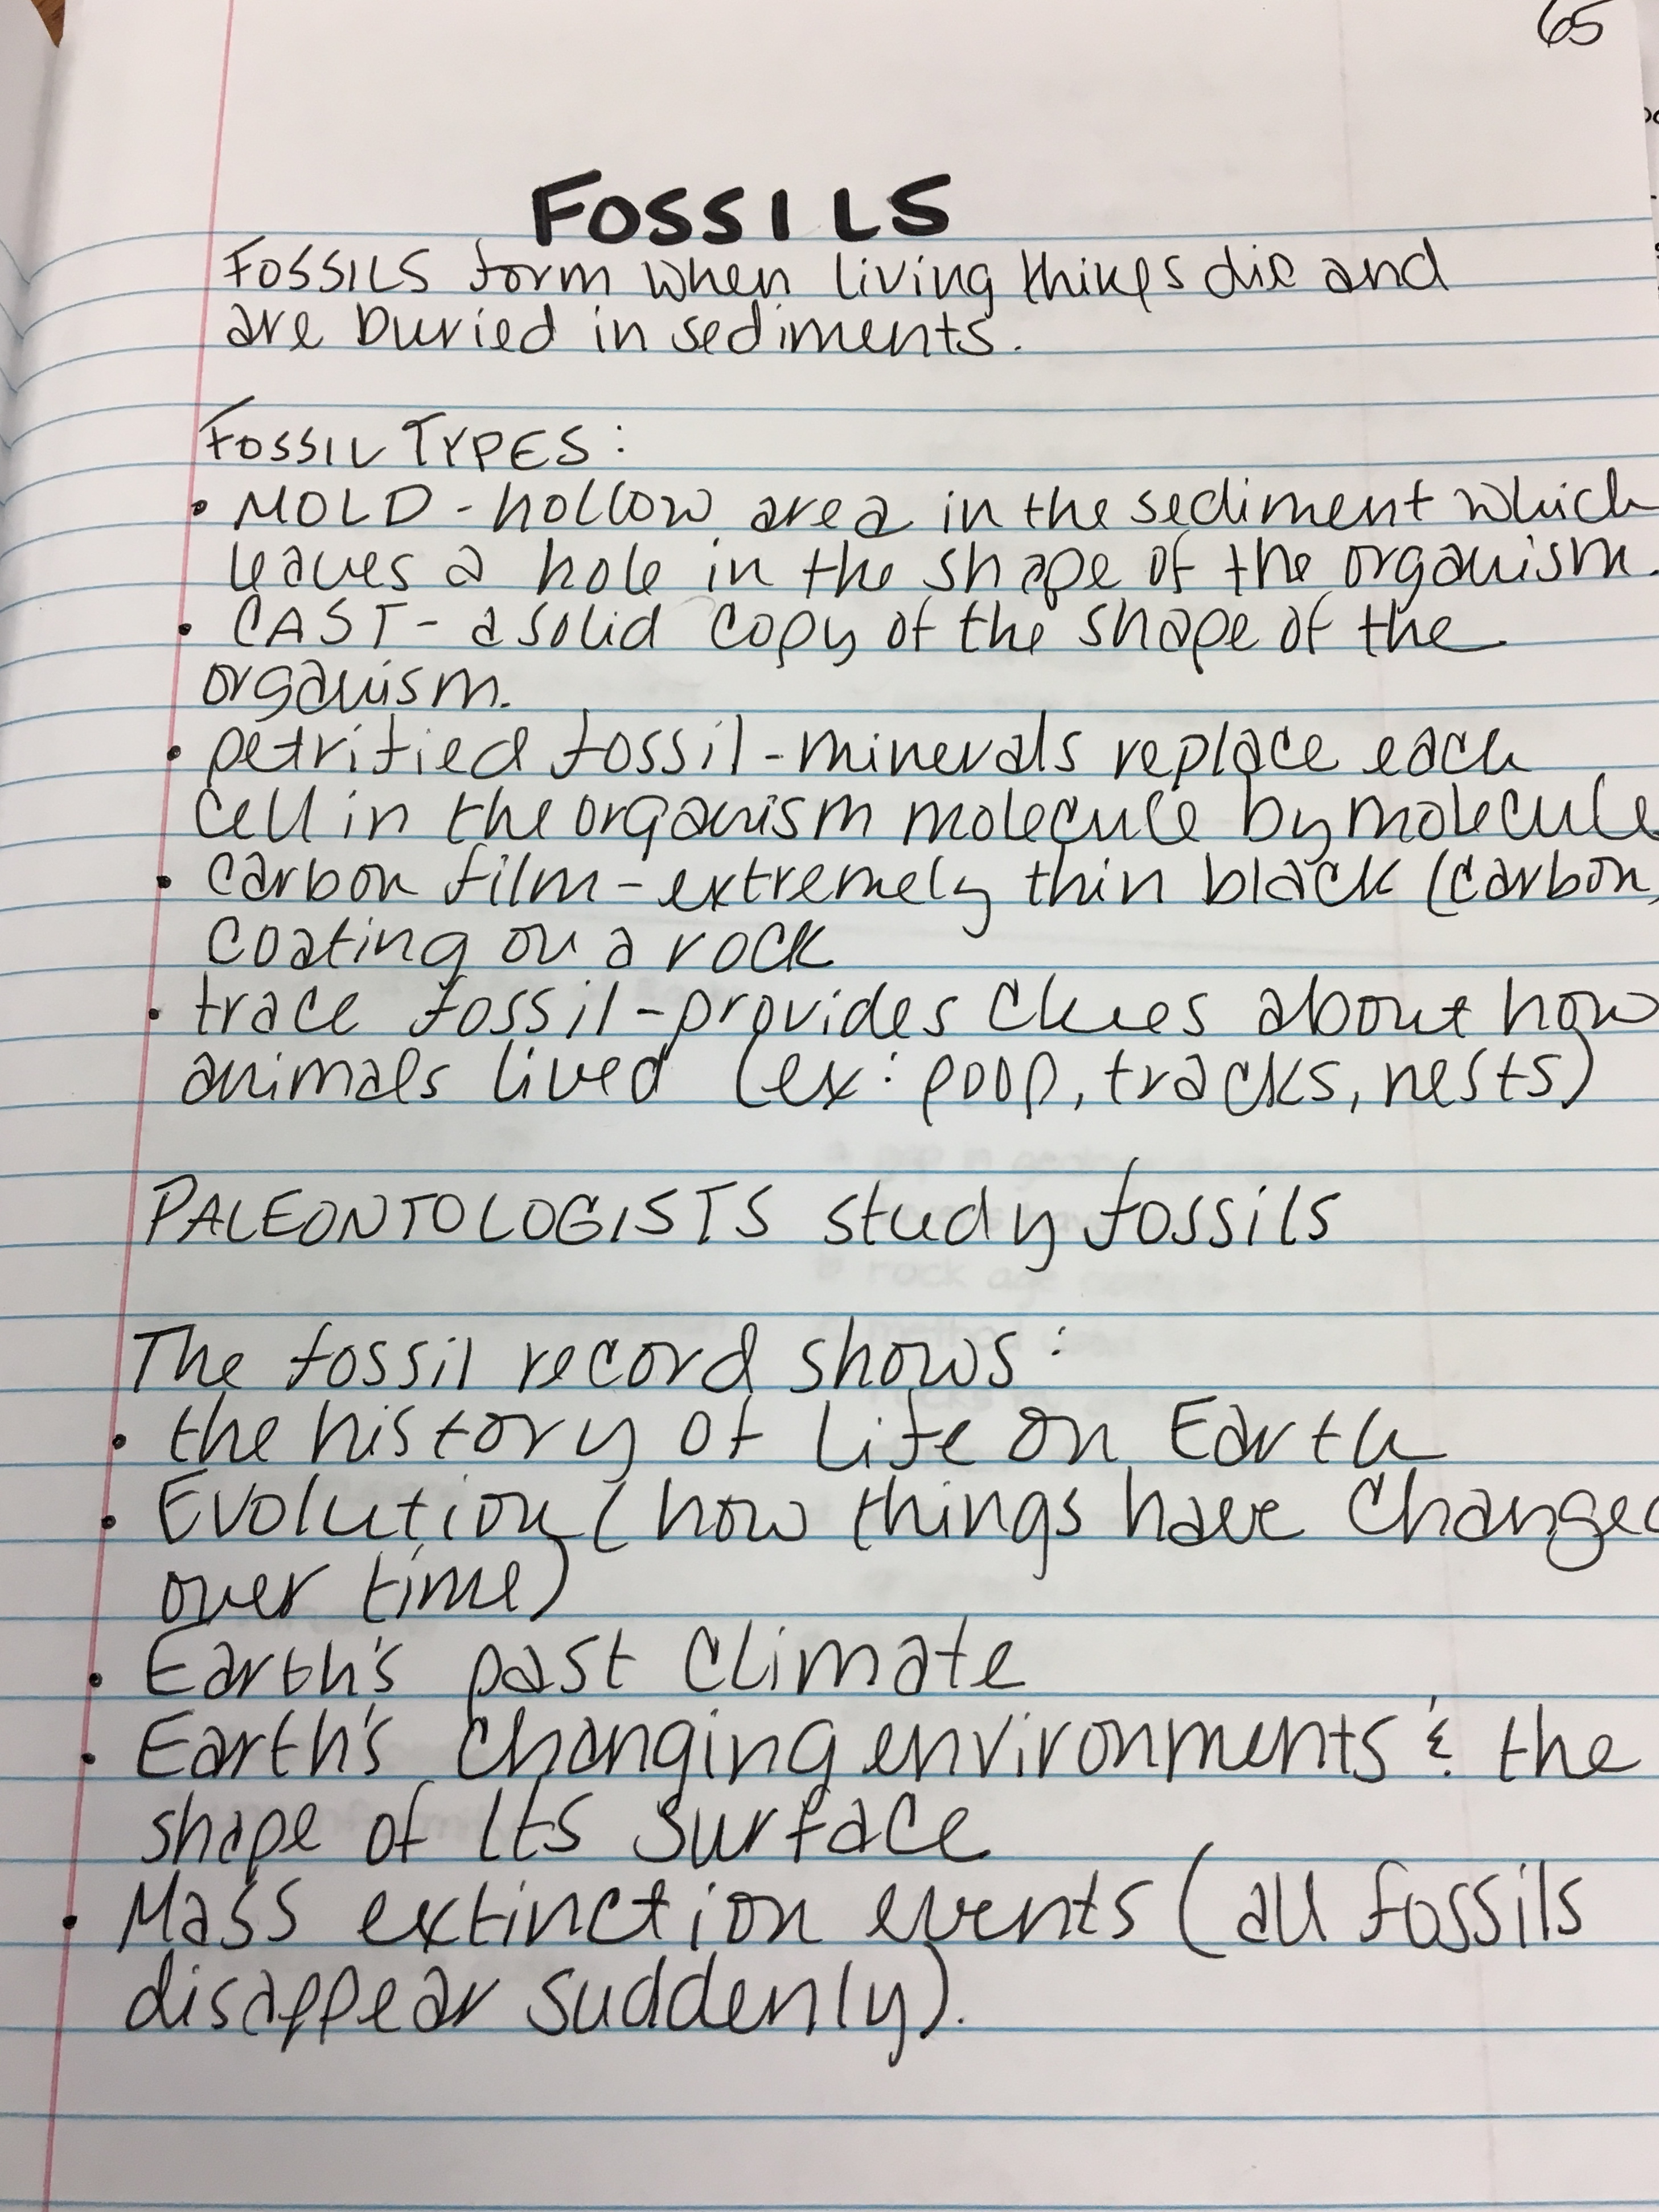 65
FOSSILS
FOSSILS form when living things die and
are buried in sediments.
FOSSIL TYPES:
• MOLD - hollow area in the sediment which
leaves a hole in the shape of the organism.
• CAST - a solid copy of the shape of the
organism.
• petrified fossil - minerals replace each
cell in the organism molecule by molecule
• carbon film - extremely thin black (carbon)
coating on a rock
• trace fossil - provides clues about how
animals lived (ex: poop, tracks, nests)
PALEONTOLOGISTS study fossils
The fossil record shows:
• the history of life on Earth
• Evolution (how things have changed
over time)
• Earth's past climate
• Earth's changing environments & the
shape of its surface
• Mass extinction events (all fossils
disappear suddenly).